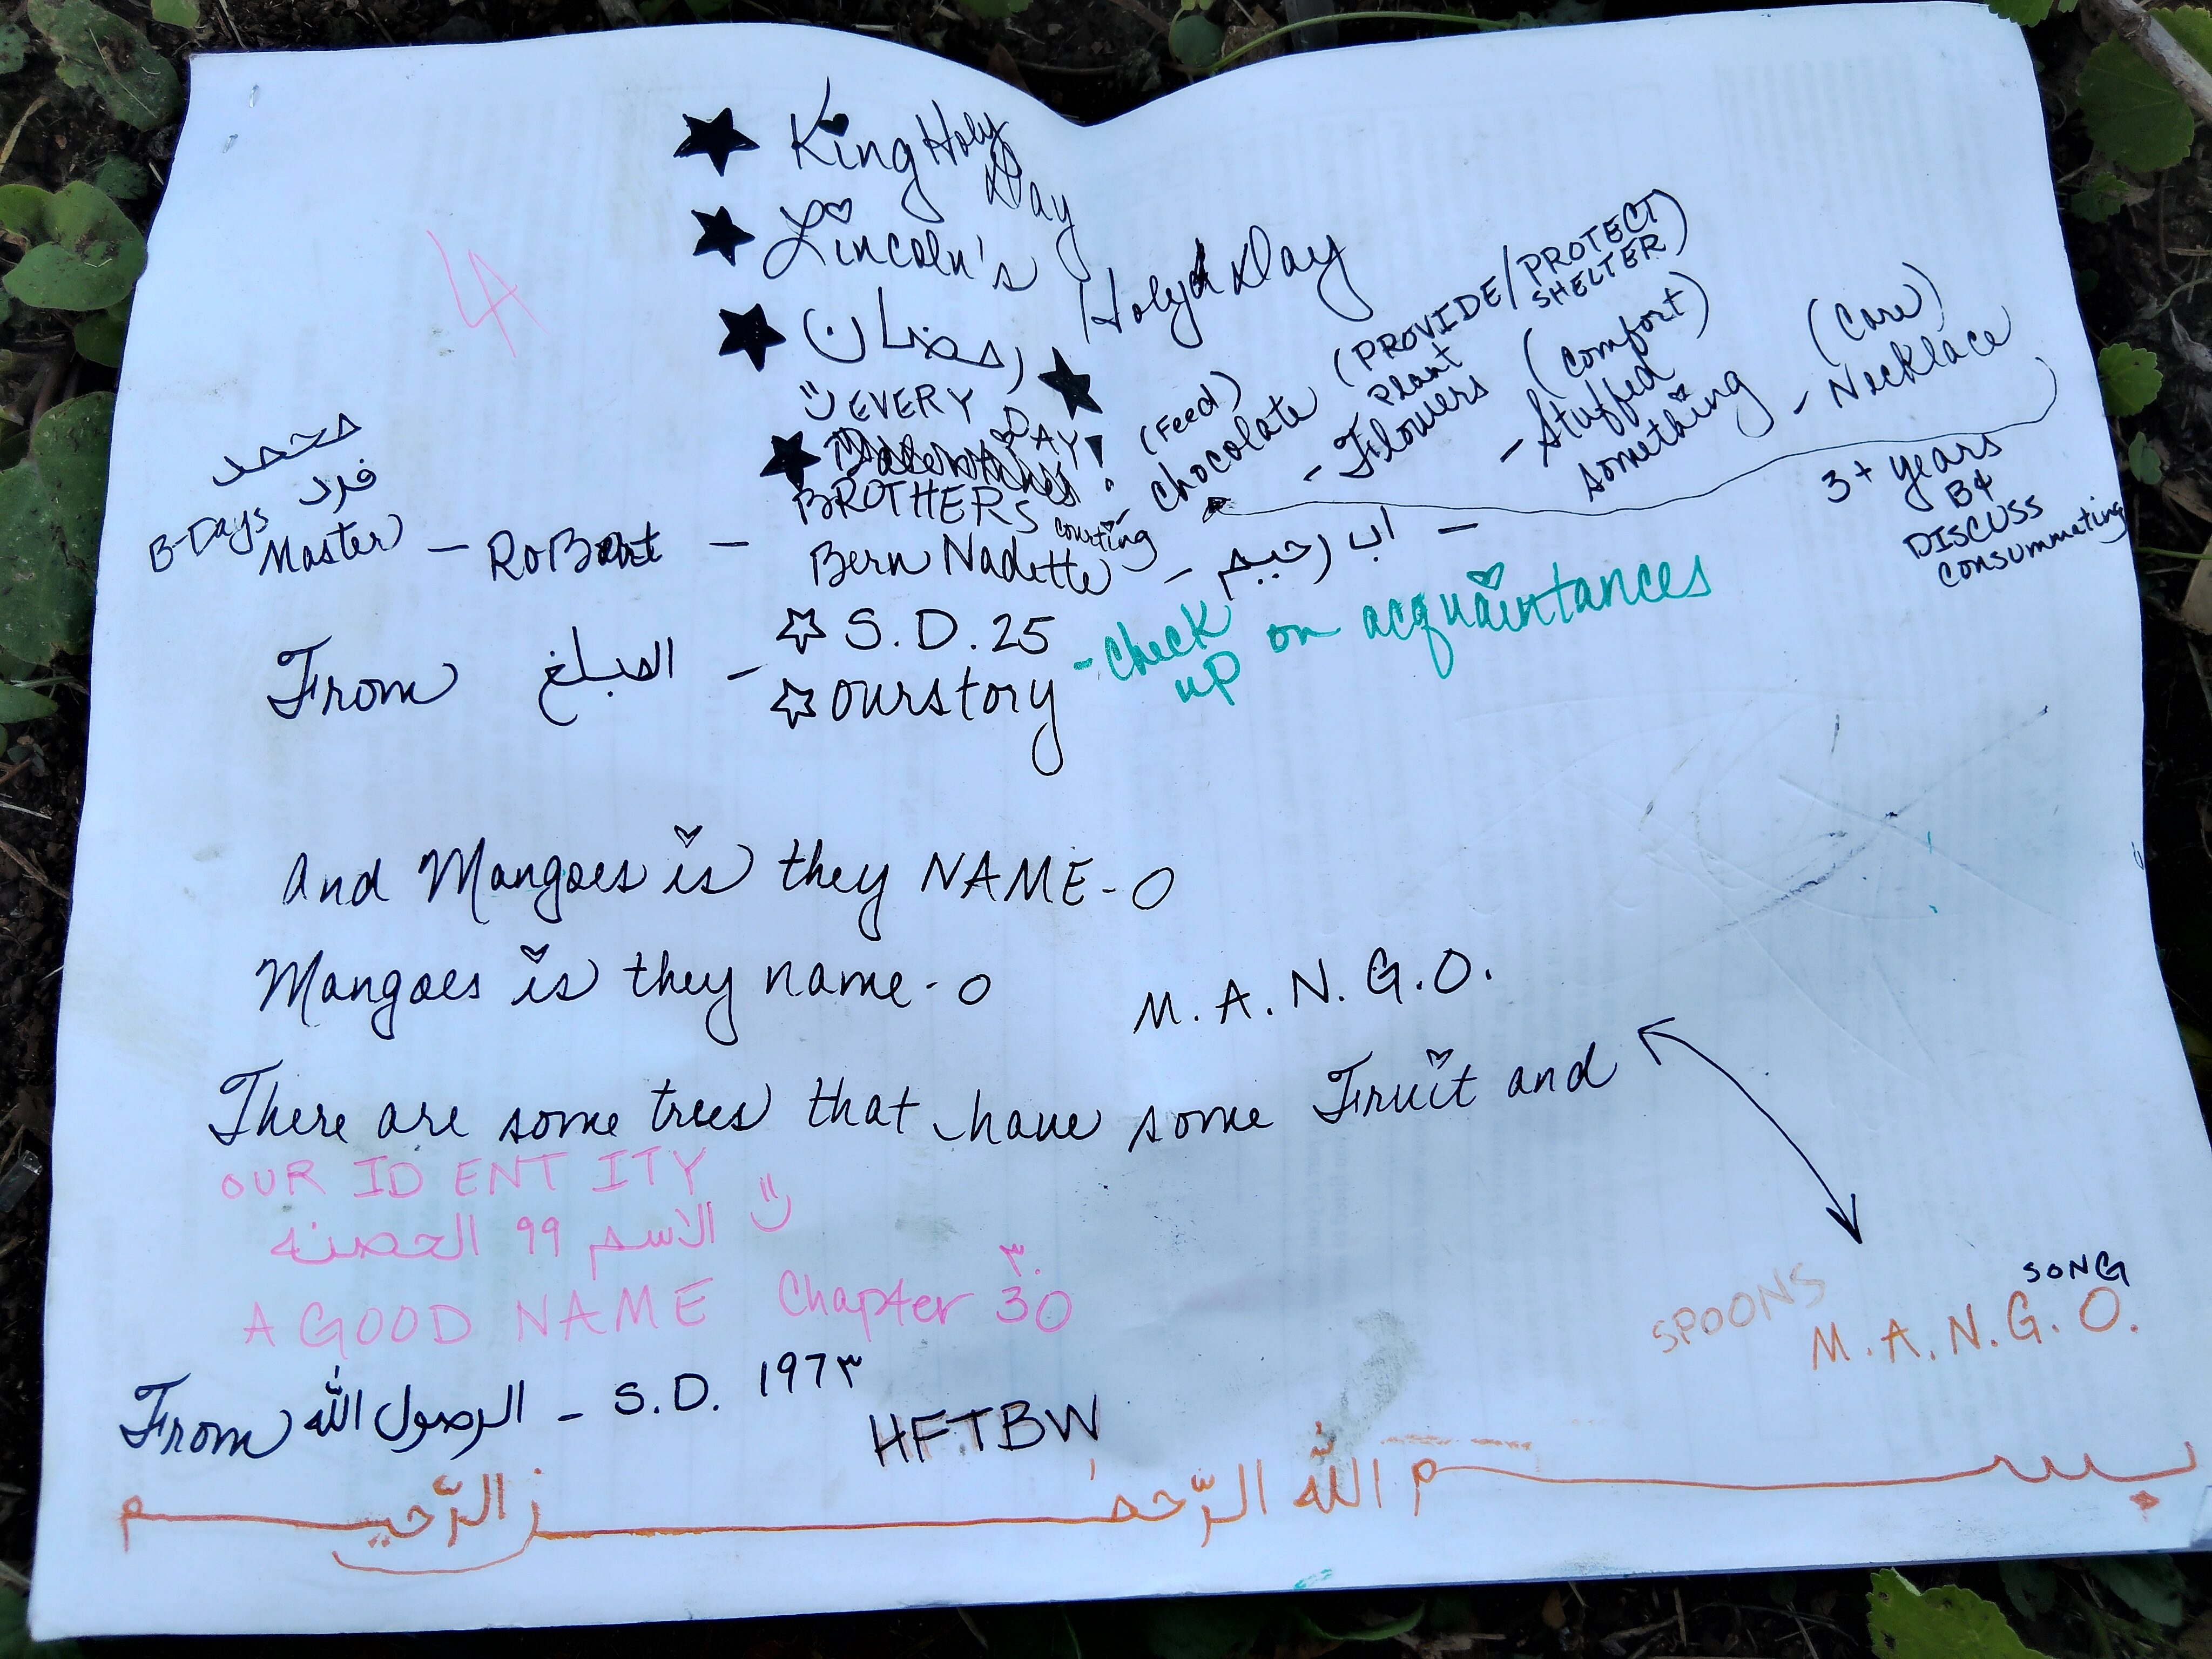 ★ King Holy Day
★ Lincoln's Holy Day
LA
★ رمضان ★
EVERY DAY!
★
BROTHERS
محمد
فرد
B-Days Master - RoBert - Bern Nadette - اب رحيم -
courting - (Feed) chocolate
- (PROVIDE/PROTECT SHELTER) Plant Flowers
- (Comfort) Stuffed something
- (Care) Necklace
3+ years
B4
DISCUSS
consummating
From المبلغ - ☆ S.D. 25
☆ ourstory
- check up on acquaintances
And Mangoes is they NAME-O
Mangoes is they name-o M.A.N.G.O.
There are some trees that have some Fruit and
OUR IDENTITY
الاسم 99 الحصنه
A GOOD NAME Chapter 30
٣٠
SPOONS
SONG
M.A.N.G.O.
From الرصول الله - S.D. 197٣
HFTBW
بسم الله الرّحمٰن الرّحيم